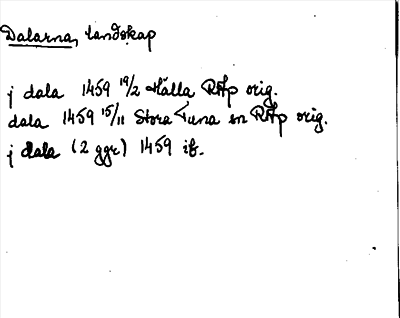 Dalarna, landskap
j dala 1459 19/2 Hålla RAp orig.
dala 1459 15/11 Stora Tuna sn RAp orig.
j dala (2 ggr) 1459 ib.